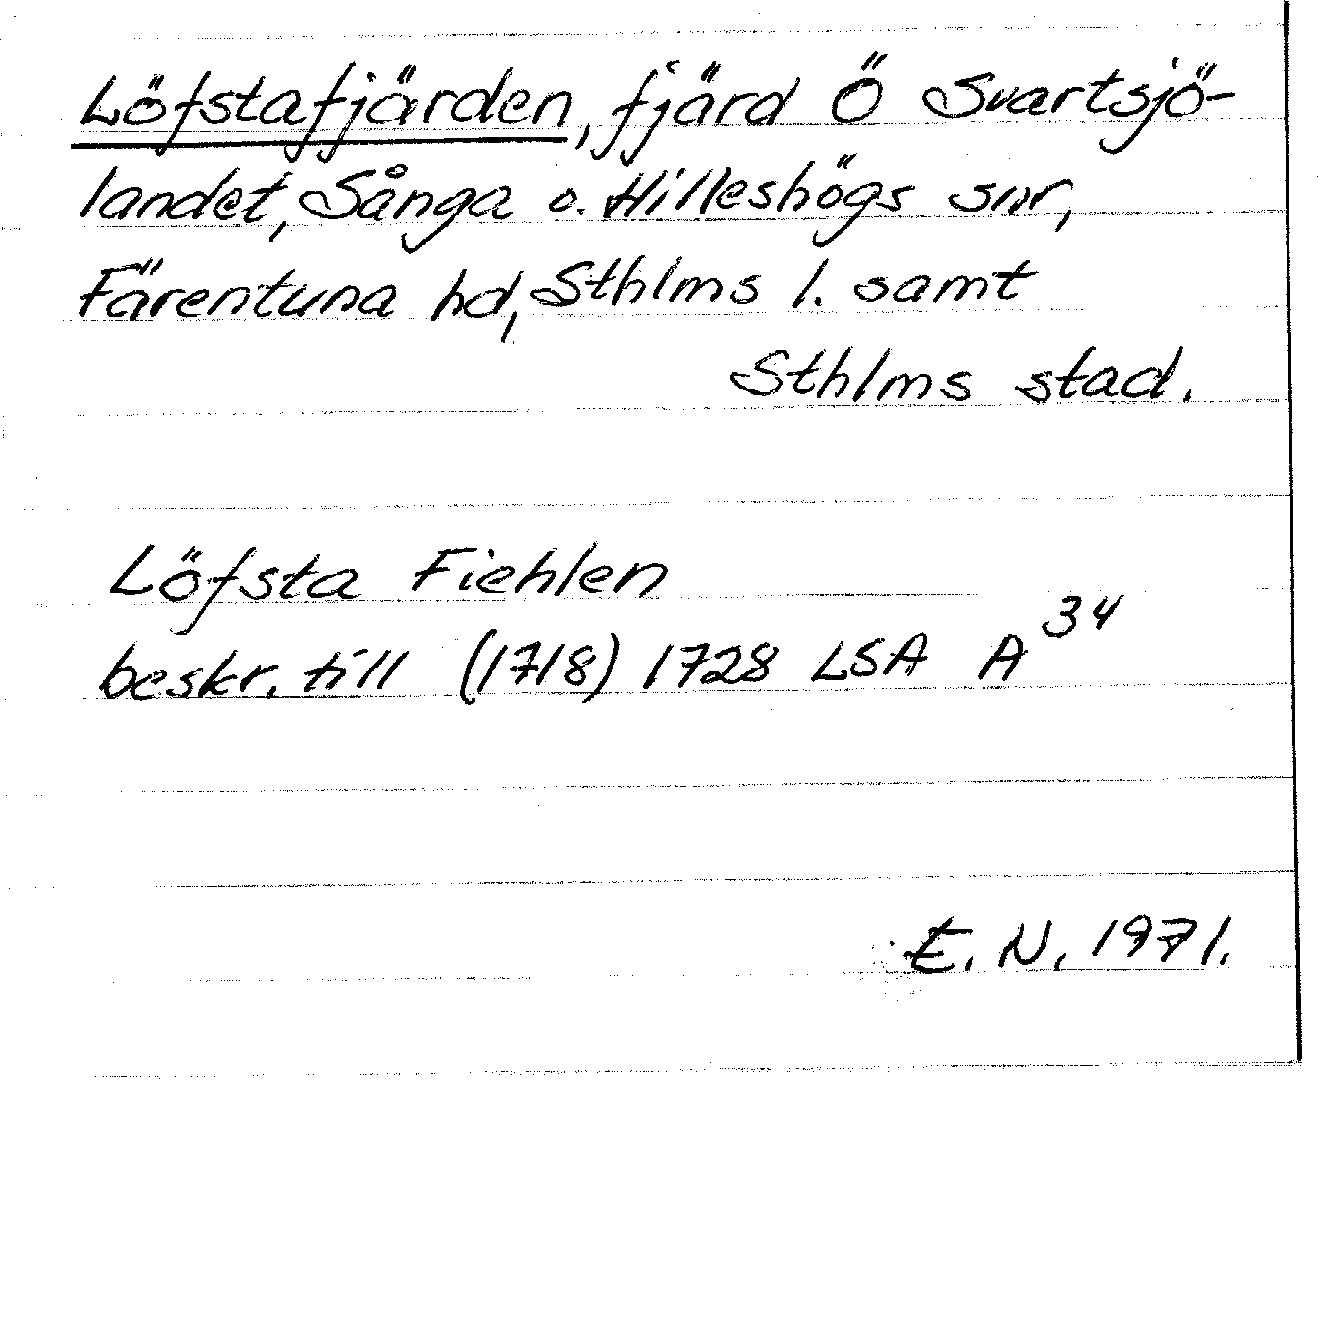 Löfstafjärden, fjärd Ö Svartsjö-
landet, Sånga o. Hilleshögs snr,
Färentuna hd, Sthlms l. samt
Sthlms stad.
Löfsta Fiehlen
beskr. till (1718) 1728 LSA A 34
E. N. 1971.